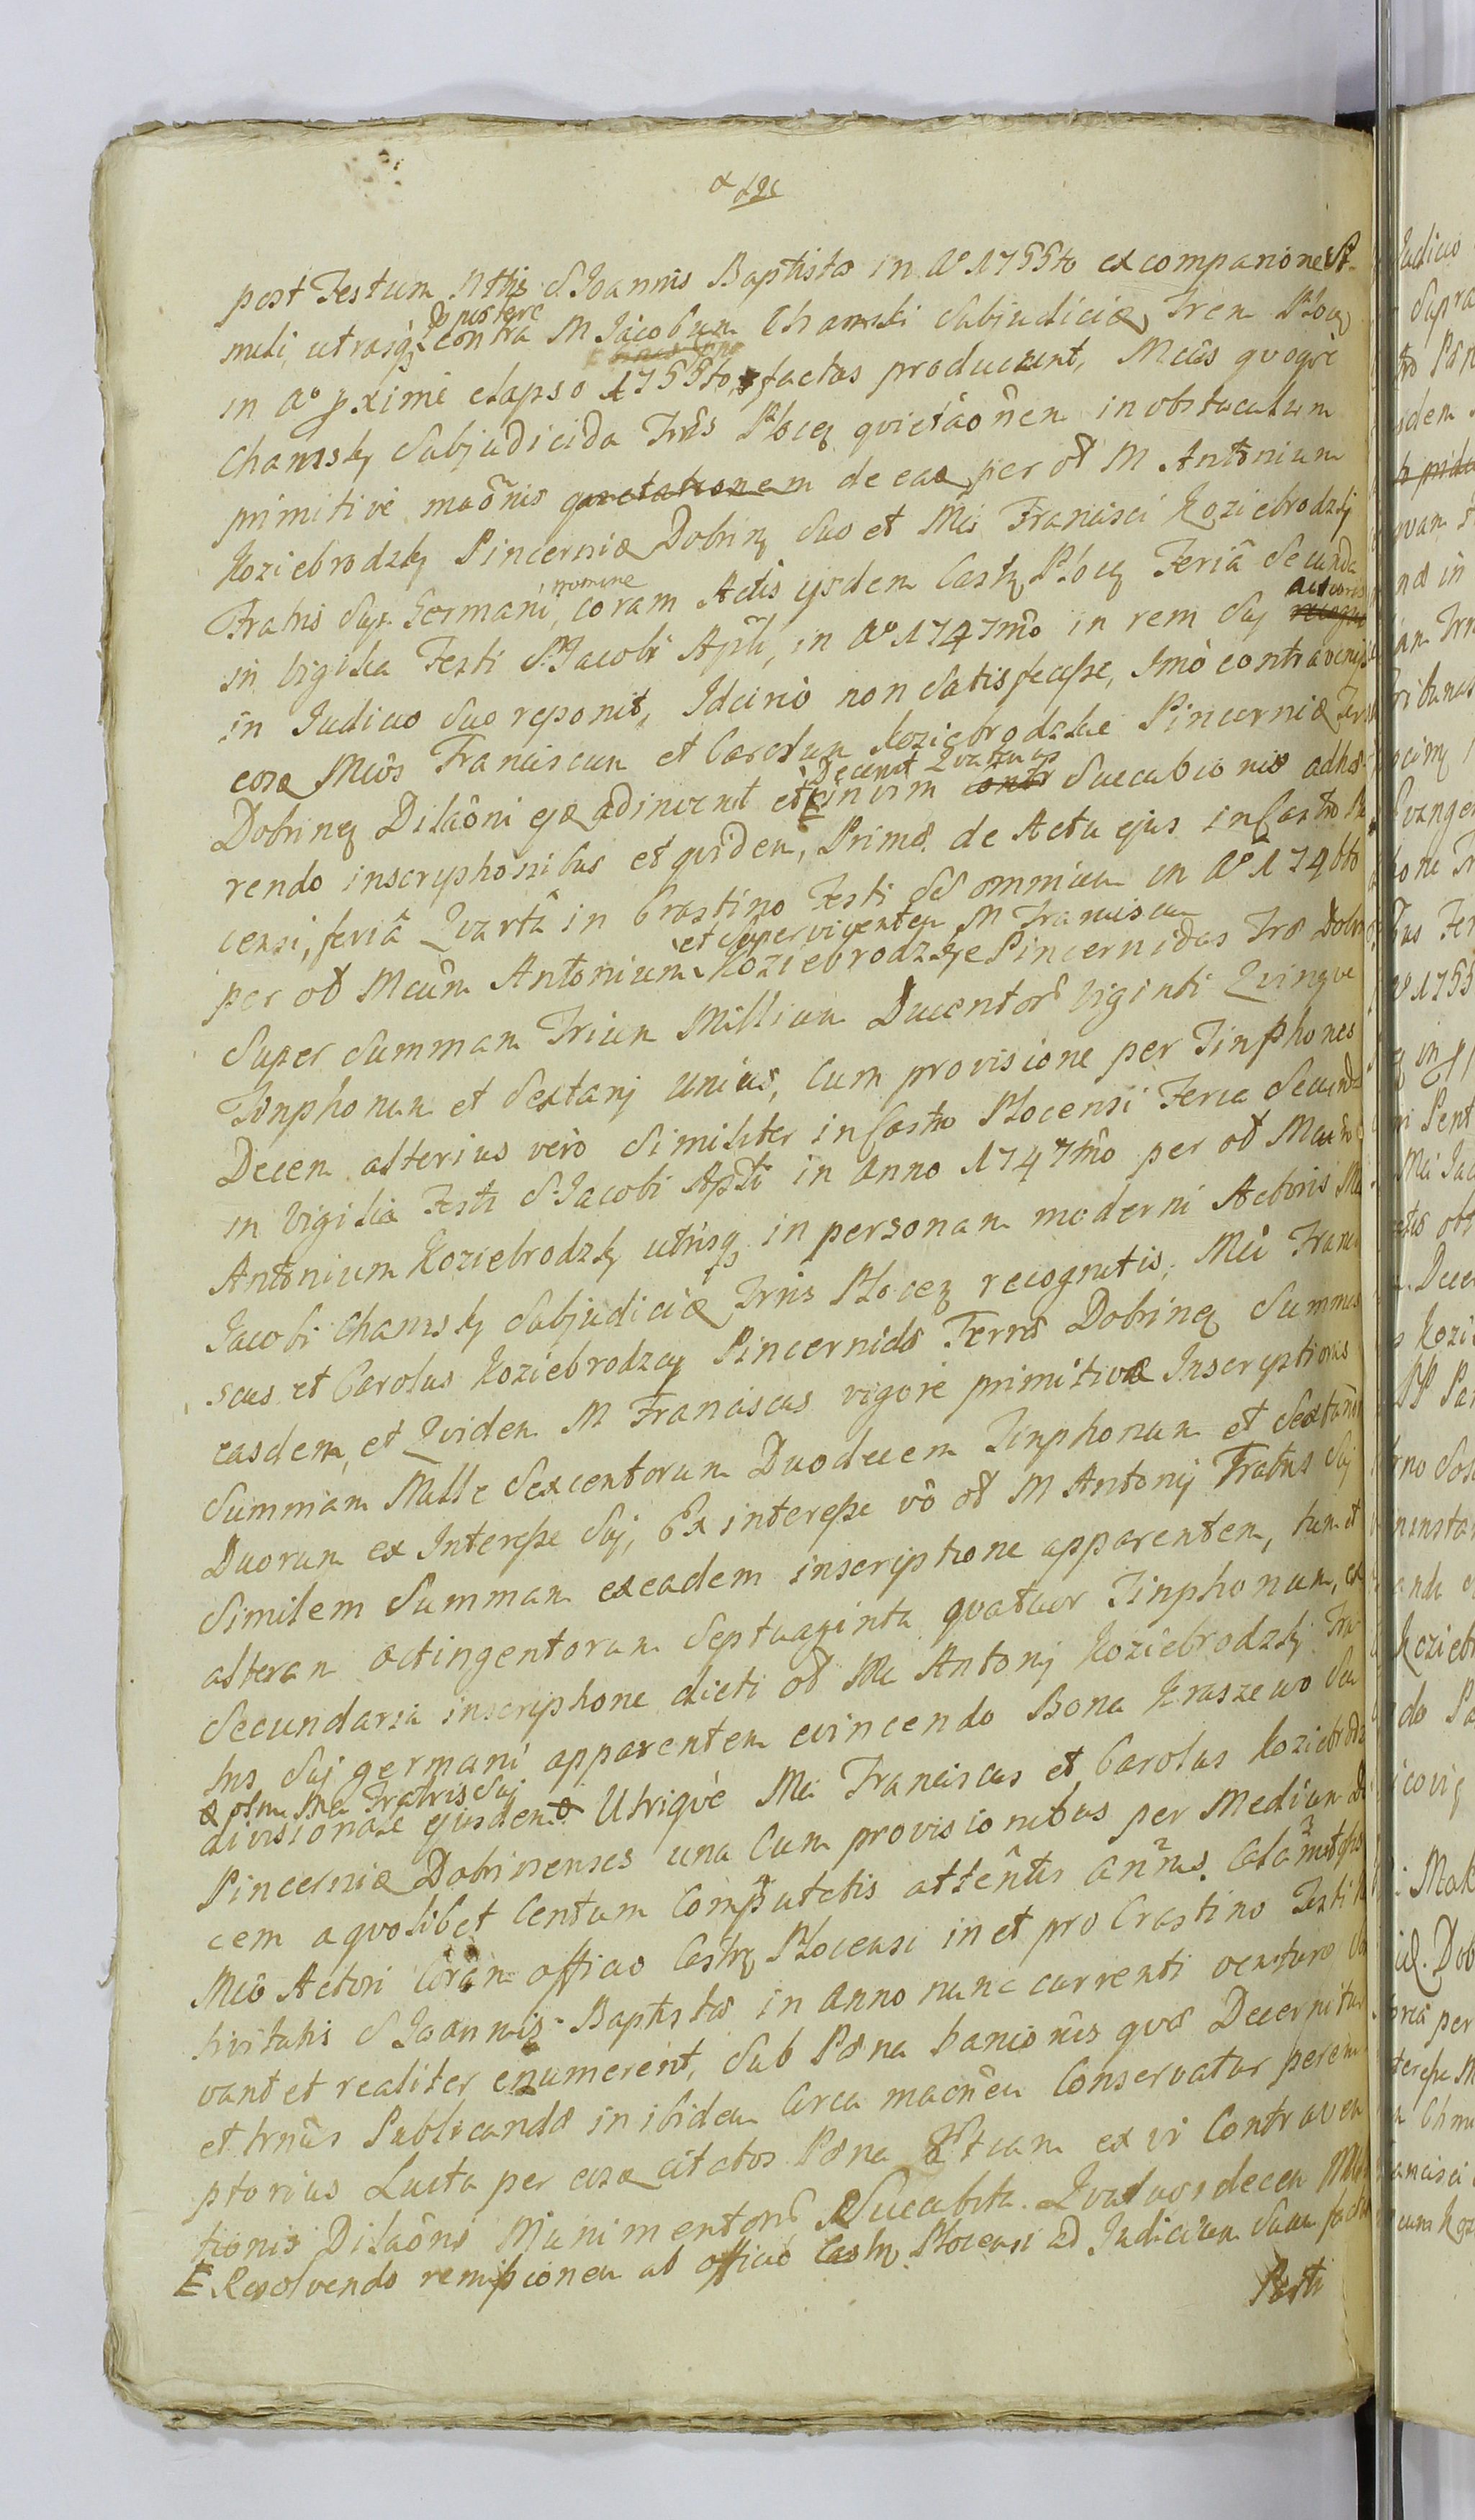 post Festum Nttis S. Joannis Baptistæ in A° 1755to ex comparione St-
muli, utrasq; contra M Jacobum Chamski Subjudiciæ, Tren Ploc
in A° pximé elapso 1755to factas producunt, Mcûs quoqve
Chamsky Subjudicida Trûs Plocz qvietaônem in obstaculum
primitivé maônis quietationem de eaæ per ođ M Antonium
Koziebrodzky Pincerniæ Dobrinz suo et Mci Francisci Koziebrodzkj
Fratris Suj Germani, nomine coram Actis ejsdem Castz Plocz Feriâ Secunda
in Vigilia Festi S. Jacobi Aplî, in A° 1747mo in rem Suj actoris
in Judicio Suo reponit, Idcirio non Satisfecisse, Imò contravenisse
eosæ Mcûs Franciscum et Carolum Koziebrodzkie Pincerniæ Ters
Dobrinez Dilaôni ejæ adinvenit et Decernit Quatuor in vim Succubionis adhæ-
rendo inscriptionibus et quidem, Primæ de Actu ejus in Castro Plo
censi, feriâ Quartâ in Crastino Festi SS omnium in A° 174 6to
per ođ Mcum Antonium et Superviventem M Franciscum Koziebrodzkie Pincernidas Træ Dobr
Super Summam Trium Millium Ducentor Viginti Quinque
Tinphonum et Sextarj unius, Cum provisione per Tinphones
Decem alterius verò Similiter in Castro Plocensi Feria Secunda
in Vigilia Festi S. Jacobi Apli in Anno 1747mo per ođ Mcum
Antonium Koziebrodzky utrisq; in personam moderni Actoris Mci
Jacobi Chamsky Subjudiciæ Trris Plocez recognitis, Mci Franci
scus et Carolus Koziebrodzcy Pincernidæ Terræ Dobrinez Summas
easdem, et Quidem M Franciscus vigore primitivæ Inscriptionis
Summam Mille Sexcentorum Duodecem Tinphonum et Sextans
Duorum ex Interesse Suj, Ex interesse vô ođ M Antonij Fratris Suj
Similem Summam ex eadem inscriptione apparentem, tum et
alteram octingentorum Septuaginta quatuor Tinphonum, ex
Secundaria inscriptione dicti ođ Mci Antonj Koziebrodzkj Fra
tris Suj germani apparentem evincendo Bona Kraszewo Su
& olim Mci Fratris Suj
divisionale ejusdem Utriqvè Mci Franciscus et Carolus Koziebrodz
Pincerniæ Dobrinenses una Cum provisionibus per Medium De
cem a quolibet Centum Computatis attentis
Mcô Actori Coram officio Castrz Plocensi in et pro Crastino Festi Na
tivitatis S Joannis Baptistæ in Anno nunc currenti venturo
vant et realiter enumerent, Sub Pæna banionis quæ Decernitur
et trnûs Publicandæ in ibidem Circa macnêm Conservatur perem
ptorius Luita per eosæ citatos Pæna ex vi Contraven
tionis Dilaôni Munimentor Succubita Quatuordecem Mar
E Resolvendo remissionem ab officio Castrz Plocensi ad Judicium Suum fact